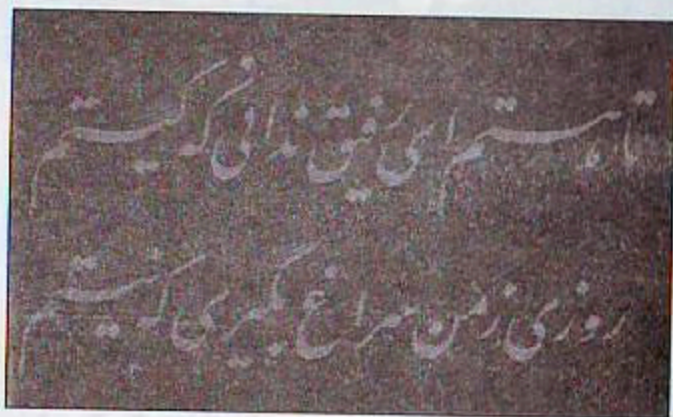 تا هستم ای رفیق ندانی که کیستم
روزی زمن سراغ بگیری که نیستم